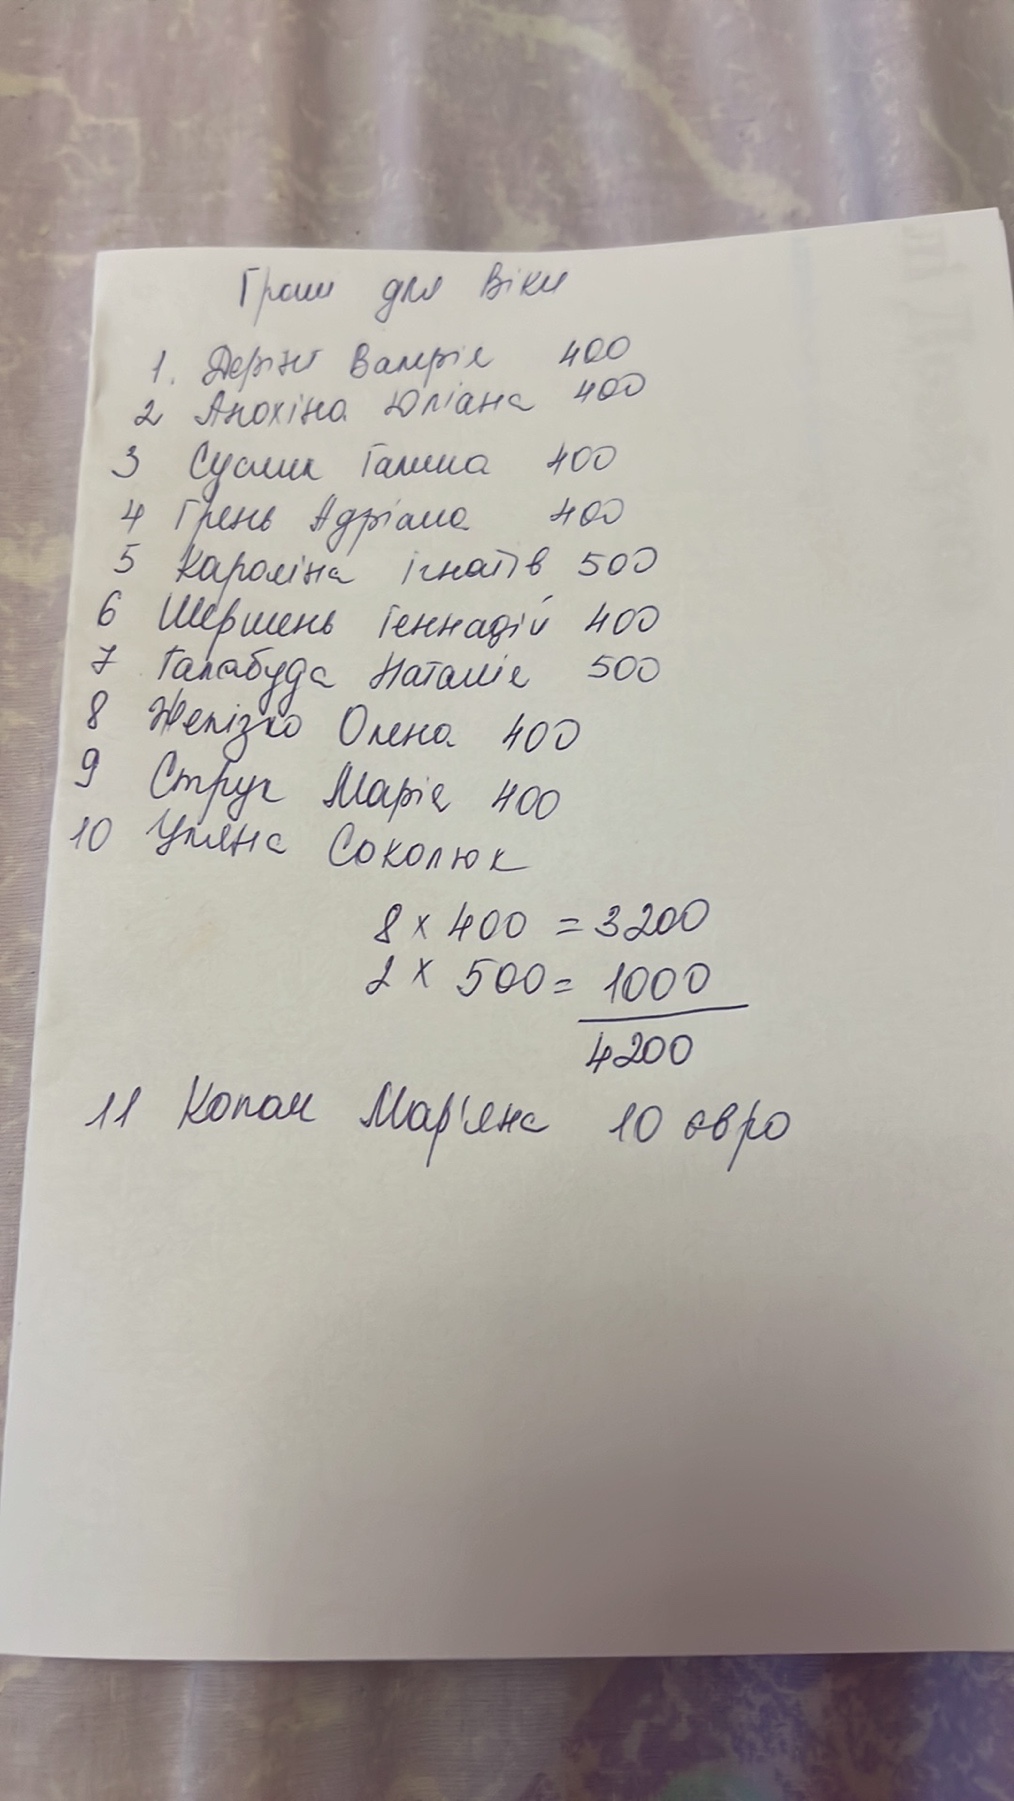 Гроші для Віки
1. Дерій Валерія 400
2 Анохіна Юліана 400
3 Суслик Галина 400
4 Грень Адріана 400
5 Кароліна Ігнатів 500
6 Шершень Геннадій 400
7 Галабуда Наталія 500
8 Желізко Олена 400
9 Струк Марія 400
10 Уляна Соколюк
8 x 400 = 3200
2 x 500 = 1000
4200
11 Копач Мар'яна 10 євро